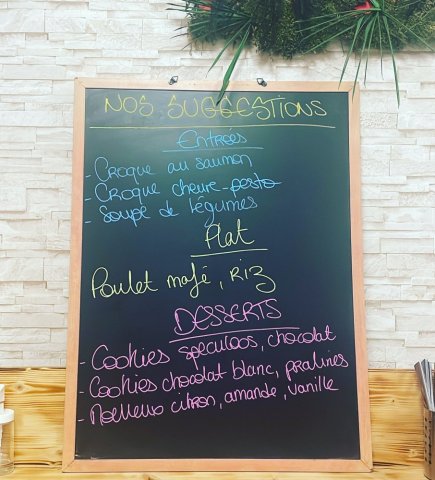 NOS SUGGESTIONS
Entrees
- Croque au saumon
- Croque chèvre-pesto
- Soupe de légumes
Plat
Poulet mafé, Riz
DESSERTS
- Cookies speculoos, chocolat
- Cookies chocolat blanc, pralines
- Moelleux citron, amande, vanille